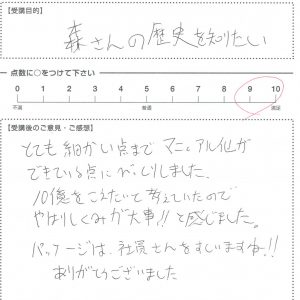 【受講目的】
森さんの歴史を知りたい
点数に○をつけて下さい
0 1 2 3 4 5 6 7 8 9 10
不満 普通 満足
【受講後のご意見・ご感想】
とても細かい点まで マニュアル化が
できている点にびっくりしました。
10億をこえたいと考えていたので
やはりしくみが大事!!と感じました。
パッケージは、社員さんをすいますね!!
ありがとうございました